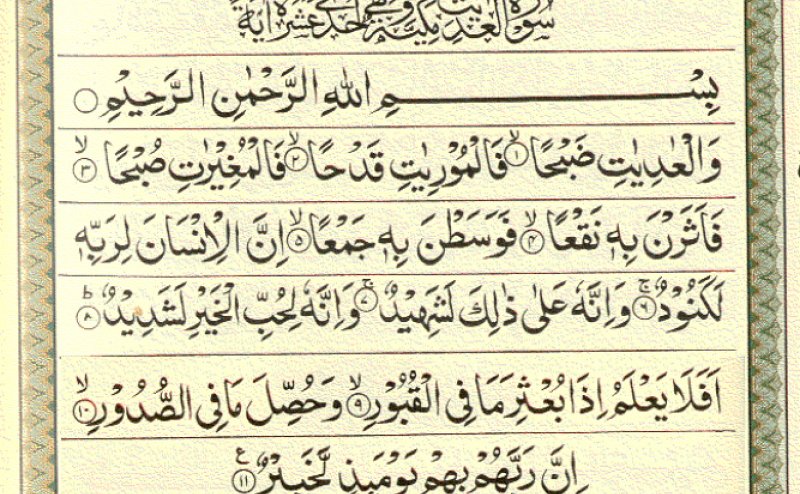 سُوْرَةُ الْعٰدِيٰتِ مَكِّيَّةٌ وَّهِيَ اِحْدٰى عَشْرَةَ اٰيَةً
بِسْمِ اللّٰهِ الرَّحْمٰنِ الرَّحِيْمِ ○
وَالْعٰدِيٰتِ ضَبْحًا ۙ۝۱ فَالْمُوْرِيٰتِ قَدْحًا ۙ۝۲ فَالْمُغِيْرٰتِ صُبْحًا ۙ۝۳
فَاَثَرْنَ بِهٖ نَقْعًا ۙ۝۴ فَوَسَطْنَ بِهٖ جَمْعًا ۙ۝۵ اِنَّ الْاِنْسَانَ لِرَبِّهٖ
لَكَنُوْدٌ ۚ۝۶ وَاِنَّهٗ عَلٰى ذٰلِكَ لَشَهِيْدٌ ۚ۝۷ وَاِنَّهٗ لِحُبِّ الْخَيْرِ لَشَدِيْدٌ ؕ۝۸
اَفَلَا يَعْلَمُ اِذَا بُعْثِرَ مَا فِى الْقُبُوْرِ ۙ۝۹ وَحُصِّلَ مَا فِى الصُّدُوْرِ ۙ۝۱۰
اِنَّ رَبَّهُمْ بِهِمْ يَوْمَئِذٍ لَّخَبِيْرٌ ۝۱۱ ع